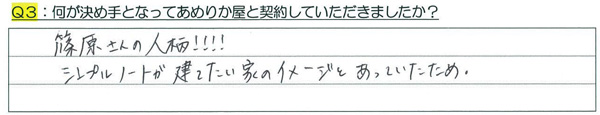 Q3：何が決め手となってあめりか屋と契約していただきましたか？
篠原さんの人柄!!!!
シンプルノートが建てたい家のイメージとあっていたため。